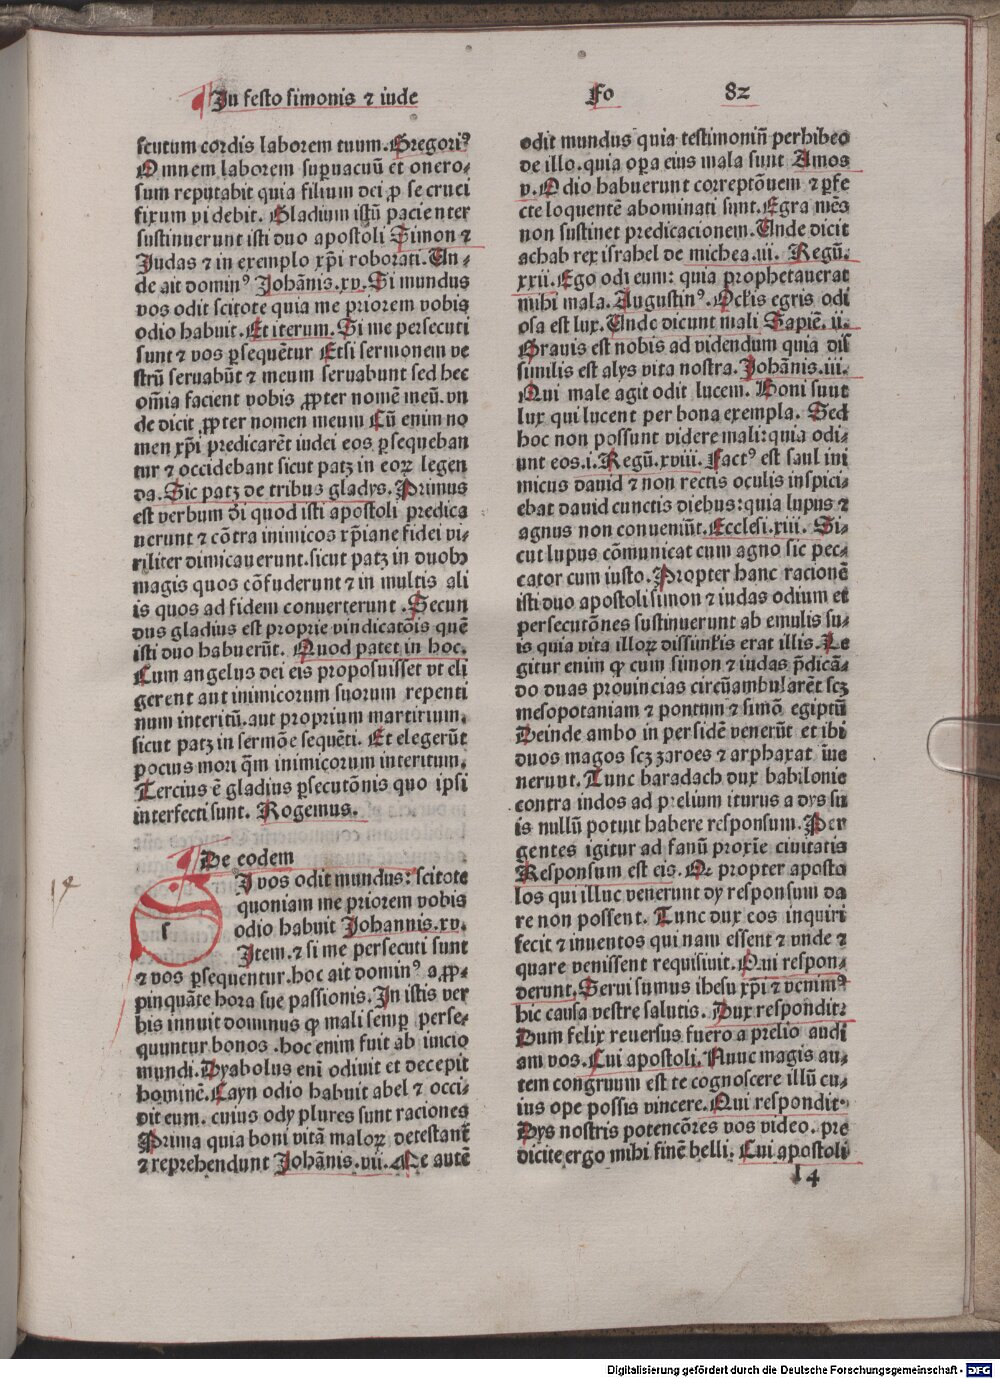 In festo simonis ⁊ iude
Fo 82
scutum cordis laborem tuum. Gregori⁹
Omnem laborem suꝑuacuū et onero⸗
sum reputabit quia filium dei ꝓ se cruci
fixum videbit. Gladium istū pacienter
sustinuerunt isti duo apostoli Simon ⁊
Judas ⁊ in exemplo xp̄i roborati. Un⸗
de ait domin⁹ Johānis.xv. Si mundus
vos odit scitote quia me priorem vobis
odio habuit. Et iterum. Si me persecuti
sunt ⁊ vos ꝑsequētur Etsi sermonem ve
strū seruabūt ⁊ meum seruabunt sed hec
om̄ia facient vobis ꝓpter nomē meū. vn
de dicit ꝓpter nomen meum Cū enim no
men xp̄i predicarēt iudei eos ꝑsequeban
tur ⁊ occidebant sicut patꝫ in eoꝝ legen
da. Sic patꝫ de tribus gladys. Primus
est verbum dī quod isti apostoli predica
uerunt ⁊ cōtra inimicos xp̄iane fidei vi⸗
riliter dimicauerunt. sicut patꝫ in duobꝫ
magis quos cōfuderunt ⁊ in multis ali
is quos ad fidem conuerterunt. Secun
dus gladius est proprie vindicatōis quē
isti duo habuerūt. Quod patet in hoc.
Cum angelus dei eis proposuisset vt eli
gerent aut inimicorum suorum repenti
num interitū. aut proprium martirium.
sicut patꝫ in sermōe sequēti. Et elegerūt
pocius mori q̄m inimicorum interitum.
Tercius ē gladius ꝑsecutōnis quo ipsi
interfecti sunt. Rogemus.
De eodem
14
s
I vos odit mundus: scitote
quoniam me priorem vobis
odio habuit Johannis.xv.
Item. ⁊ si me persecuti sunt
⁊ vos ꝑsequentur. hoc ait domin⁹ a ꝓp⸗
pinquāte hora sue passionis. In istis ver
bis innuit dominus ꝙ mali semꝑ perse⸗
quuntur bonos. hoc enim fuit ab inicio
mundi. Dyabolus eni odiuit et decepit
hominē. Cayn odio habuit abel ⁊ occi⸗
dit eum. cuius ody plures sunt raciones
Prima quia boni vitā maloꝝ detestant̄
⁊ reprehendunt Johānis.vii. Me autē
odit mundus quia testimoniū perhibeo
de illo. quia oꝑa eius mala sunt Amos
v. Odio habuerunt correptōuem ⁊ ꝑfe
cte loquentē abominati sunt. Egra mēs
non sustinet predicacionem. Unde dicit
achab rex israhel de michea.iii. Regū.
xxii. Ego odi eum: quia prophetauerat
mihi mala. Augustin⁹. Ocl̄is egris odi
osa est lux. Unde dicunt mali Sapiē.ii.
Grauis est nobis ad videndum quia dis
similis est alys vita nostra. Johānis.iii.
Qui male agit odit lucem. Boni sunt
lux qui lucent per bona exempla. Sed
hoc non possunt videre mali: quia odi⸗
unt eos.i. Regū.xviii. Fact⁹ est saul ini
micus dauid ⁊ non rectis oculis inspici⸗
ebat dauid cunctis diebus: quia lupus ⁊
agnus non conueniūt. Ecclesi.xiii. Si⸗
cut lupus cōmunicat cum agno sic pec⸗
cator cum iusto. Propter hanc racionē
isti duo apostoli simon ⁊ iudas odium et
persecutōnes sustinuerunt ab emulis su⸗
is quia vita illoꝝ dissimil̄is erat illis. Le
gitur enim ꝙ cum simon ⁊ iudas p̄dicā⸗
do duas prouincias circūambularēt scꝫ
mesopotaniam ⁊ pontum ⁊ simō egiptū
Deinde ambo in persidē venerūt et ibi
duos magos scꝫ zaroes ⁊ arphaxat iue
nerunt. Tunc baradach dux babilonie
contra indos ad prelium iturus a dys su
is nullū potuit habere responsum. Per
gentes igitur ad fanū proxīe ciuitatis
Responsum est eis. Qꝛ propter aposto
los qui illuc venerunt dy responsum da
re non possent. Tunc dux eos inquiri
fecit ⁊ inuentos qui nam essent ⁊ vnde ⁊
quare venissent requisiuit. Qui respon⸗
derunt. Serui sumus ihesu xp̄i ⁊ venim⁹
hic causa vestre salutis. Dux respondit:
Dum felix reuersus fuero a prelio audi
am vos. Cui apostoli. Nunc magis au⸗
tem congruum est te cognoscere illū cu⸗
ius ope possis vincere. Qui respondit.
Dys nostris potencōres vos video. pre
dicite ergo mihi finē belli. Cui apostoli
l 4
Digitalisierung gefördert durch die Deutsche Forschungsgemeinschaft - DFG